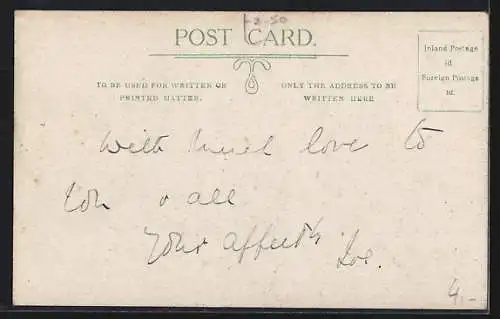 +3-50
POST CARD.
Inland Postage
½d
Foreign Postage
1d.
TO BE USED FOR WRITTEN OR
PRINTED MATTER.
ONLY THE ADDRESS TO BE
WRITTEN HERE
With much love to
you & all
Your affectly
Joe.
4.-